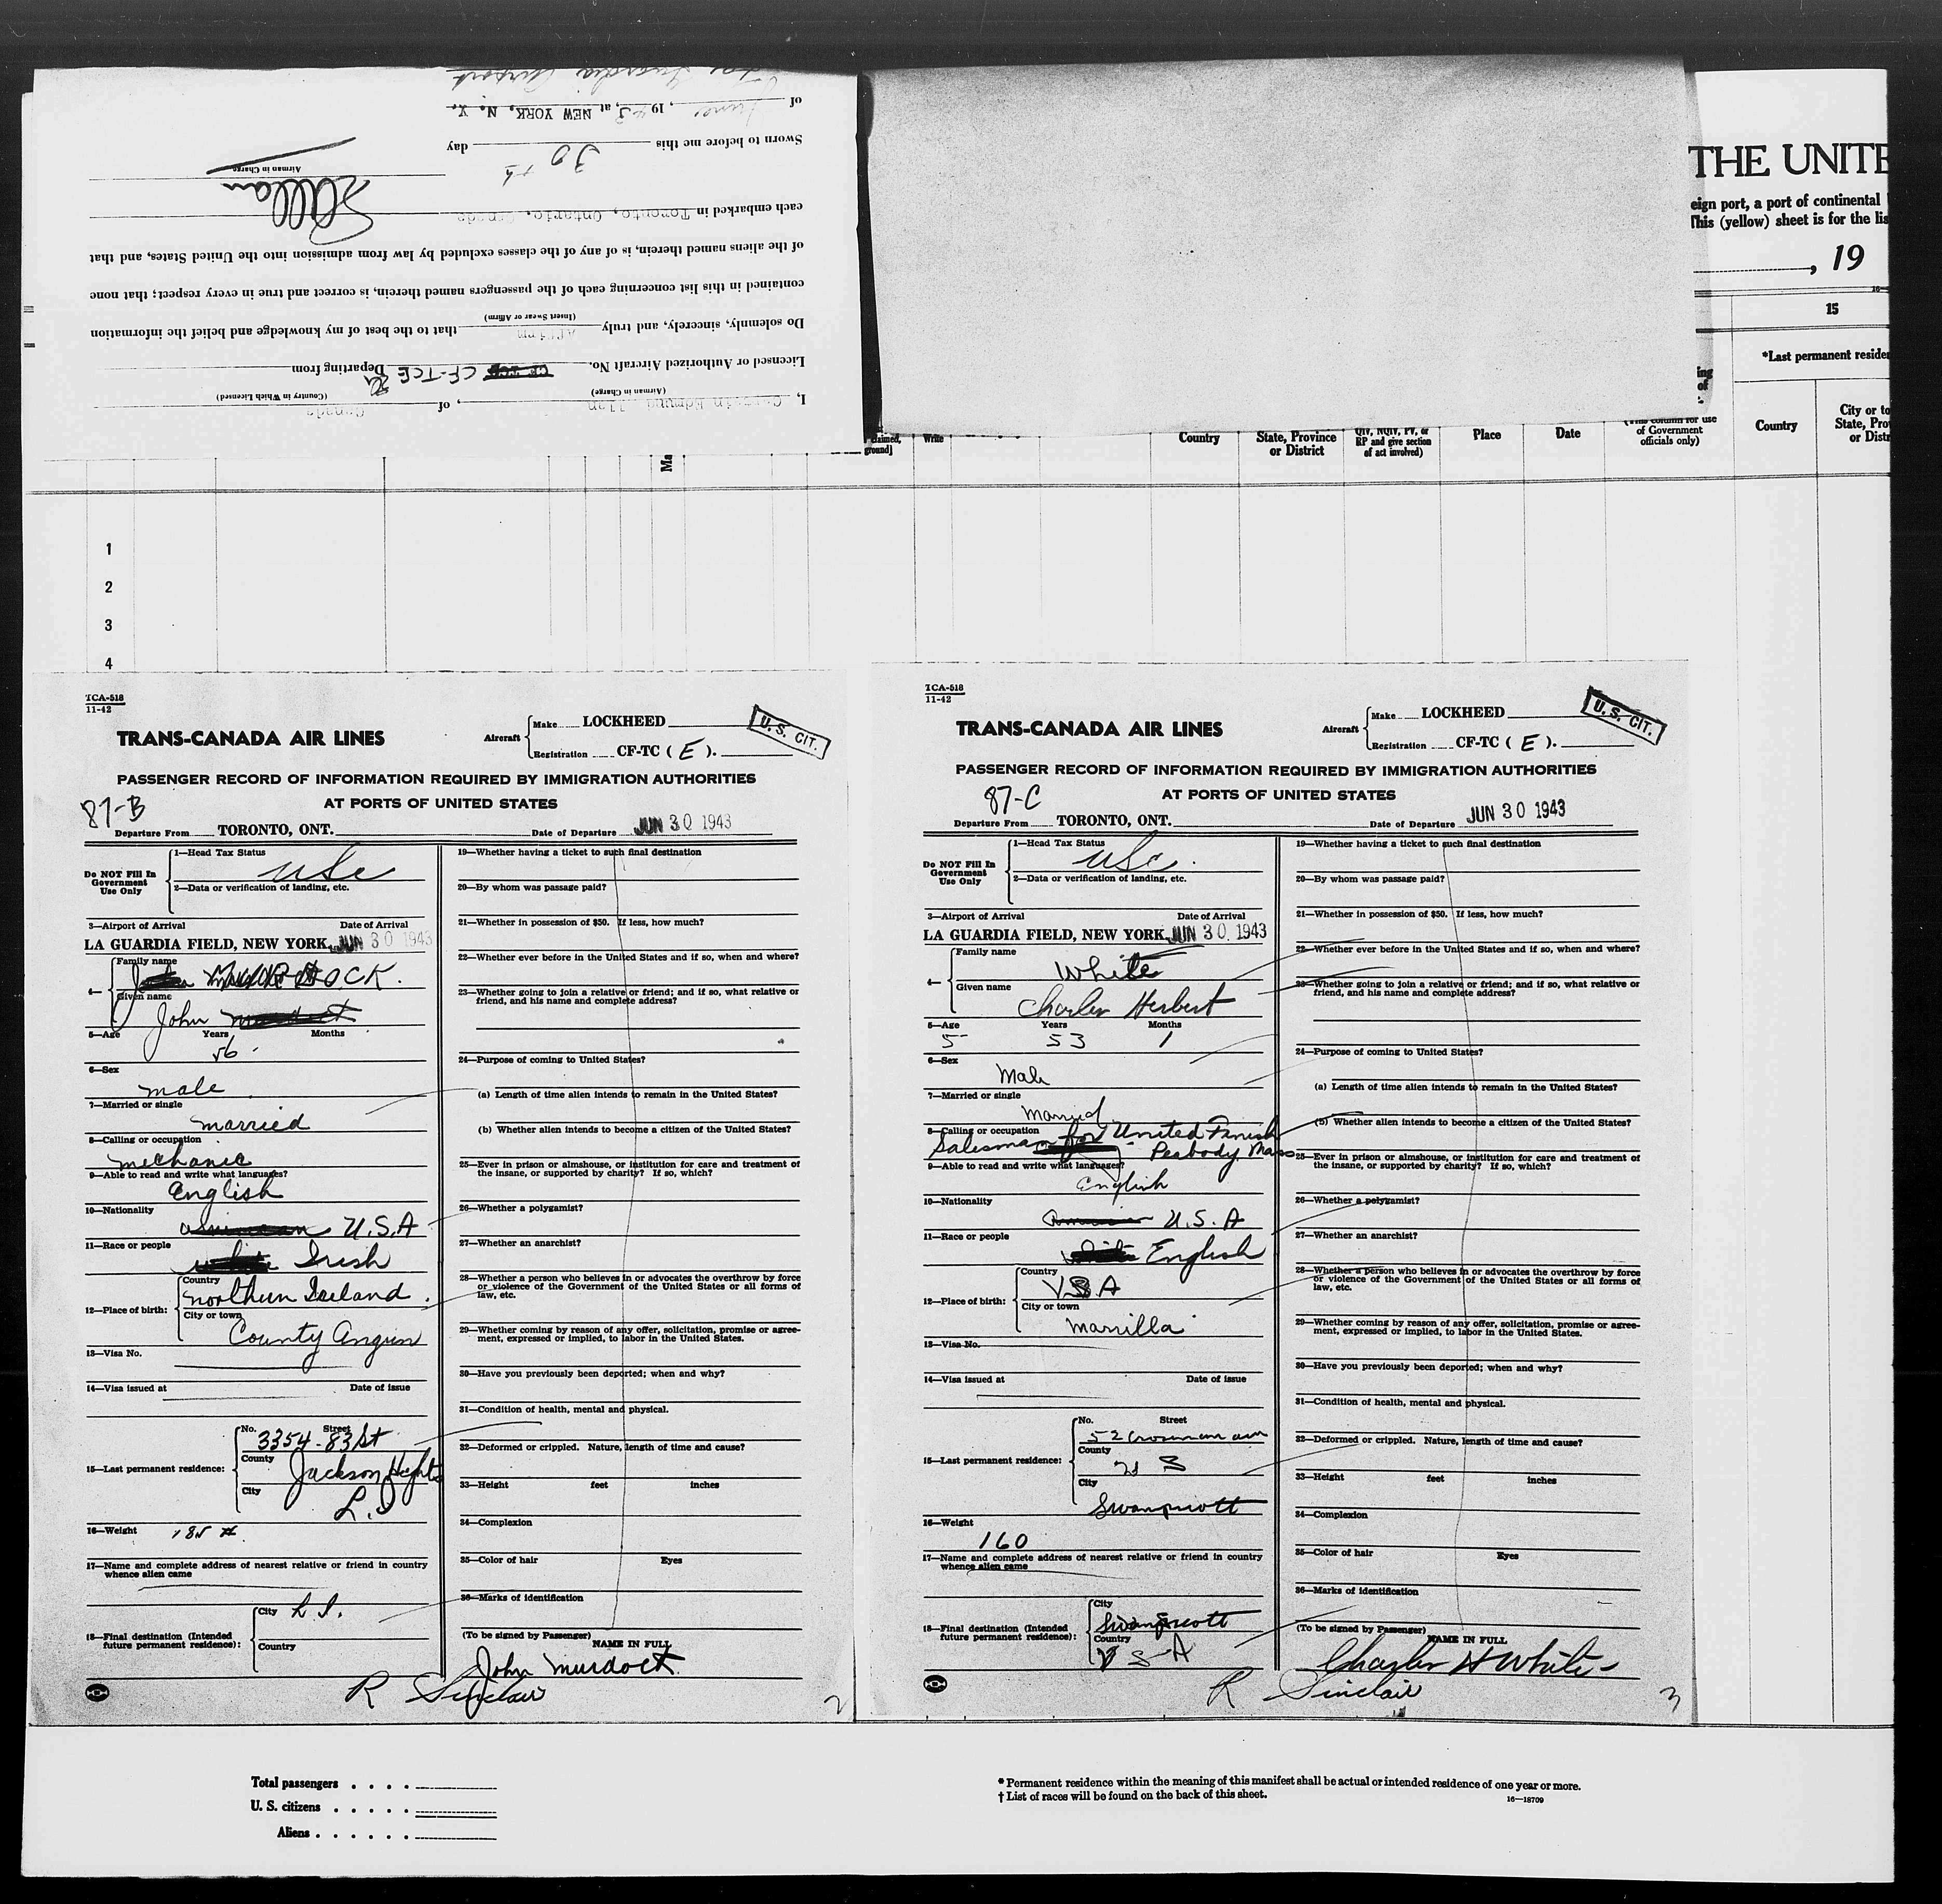 I, Captain Edmund Allan, of Canada
(Airman in Charge) (Country in Which Licensed)
Licensed or Authorized Aircraft No. CF-TCE Departing from
Do solemnly, sincerely, and truly affirm that to the best of my knowledge and belief the information
(Insert Swear or Affirm)
contained in this list concerning each of the passengers named therein, is correct and true in every respect; that none
of the aliens named therein, is of any of the classes excluded by law from admission into the United States, and that
each embarked in Toronto, Ontario, Canada
Airman in Charge
Sworn to before me this 30th day
of June, 1943, at NEW YORK, N. Y.
La Guardia Airport
THE UNITE
eign port, a port of continental
This (yellow) sheet is for the lis
, 19
15
*Last permanent reside
ing
of
claimed,
ground]
Write
Country
State, Province
or District
QIV, NQIV, PV, or
RP and give section
of act involved)
Place
Date
(This column for use
of Government
officials only)
Country
City or to
State, Pro
or Distr
Ma
1
2
3
4
TCA-518
11-42
TRANS-CANADA AIR LINES
Aircraft
Make LOCKHEED
Registration CF-TC ( E ).
U. S. CIT.
PASSENGER RECORD OF INFORMATION REQUIRED BY IMMIGRATION AUTHORITIES
AT PORTS OF UNITED STATES
87-B
Departure From TORONTO, ONT. Date of Departure JUN 30 1943
Do NOT Fill In
Government
Use Only
1—Head Tax Status
USc
2—Data or verification of landing, etc.
3—Airport of Arrival Date of Arrival
LA GUARDIA FIELD, NEW YORK, JUN 30 1943
4—
Family name
MURDOCK.
Given name
John
5—Age Years Months
56
6—Sex
male
7—Married or single
married
8—Calling or occupation
mechanic
9—Able to read and write what languages?
English
10—Nationality
American U.S.A
11—Race or people
white Irish
12—Place of birth:
Country
northern Ireland.
City or town
County Angrim
13—Visa No.
14—Visa issued at Date of issue
15—Last permanent residence:
No. Street
3354-83 St
County
Jackson Heights
City
L.I
16—Weight 185 #
17—Name and complete address of nearest relative or friend in country
whence alien came
18—Final destination (Intended
future permanent residence):
City L.I.
Country
19—Whether having a ticket to such final destination
20—By whom was passage paid?
21—Whether in possession of $50. If less, how much?
22—Whether ever before in the United States and if so, when and where?
23—Whether going to join a relative or friend; and if so, what relative or
friend, and his name and complete address?
24—Purpose of coming to United States?
(a) Length of time alien intends to remain in the United States?
(b) Whether alien intends to become a citizen of the United States?
25—Ever in prison or almshouse, or institution for care and treatment of
the insane, or supported by charity? If so, which?
26—Whether a polygamist?
27—Whether an anarchist?
28—Whether a person who believes in or advocates the overthrow by force
or violence of the Government of the United States or all forms of
law, etc.
29—Whether coming by reason of any offer, solicitation, promise or agree-
ment, expressed or implied, to labor in the United States.
30—Have you previously been deported; when and why?
31—Condition of health, mental and physical.
32—Deformed or crippled. Nature, length of time and cause?
33—Height feet inches
34—Complexion
35—Color of hair Eyes
36—Marks of identification
(To be signed by Passenger)
NAME IN FULL
John Murdock
R Sinclair
2
TCA-518
11-42
TRANS-CANADA AIR LINES
Aircraft
Make LOCKHEED
Registration CF-TC ( E ).
U. S. CIT.
PASSENGER RECORD OF INFORMATION REQUIRED BY IMMIGRATION AUTHORITIES
AT PORTS OF UNITED STATES
87-C
Departure From TORONTO, ONT. Date of Departure JUN 30 1943
Do NOT Fill In
Government
Use Only
1—Head Tax Status
USc.
2—Data or verification of landing, etc.
3—Airport of Arrival Date of Arrival
LA GUARDIA FIELD, NEW YORK, JUN 30 1943
4—
Family name
White
Given name
Charles Herbert
5—Age Years Months
5 53 1
6—Sex
Male
7—Married or single
Married
8—Calling or occupation
Salesman for United Finish
Peabody Mass
9—Able to read and write what languages?
English
10—Nationality
American U.S.A
11—Race or people
white English
12—Place of birth:
Country
USA
City or town
Manilla
13—Visa No.
14—Visa issued at Date of issue
15—Last permanent residence:
No. Street
52 Crosman ave
County
U S
City
Swampscott
16—Weight
160
17—Name and complete address of nearest relative or friend in country
whence alien came
18—Final destination (Intended
future permanent residence):
City
Swampscott
Country
U S A
19—Whether having a ticket to such final destination
20—By whom was passage paid?
21—Whether in possession of $50. If less, how much?
22—Whether ever before in the United States and if so, when and where?
23—Whether going to join a relative or friend; and if so, what relative or
friend, and his name and complete address?
24—Purpose of coming to United States?
(a) Length of time alien intends to remain in the United States?
(b) Whether alien intends to become a citizen of the United States?
25—Ever in prison or almshouse, or institution for care and treatment of
the insane, or supported by charity? If so, which?
26—Whether a polygamist?
27—Whether an anarchist?
28—Whether a person who believes in or advocates the overthrow by force
or violence of the Government of the United States or all forms of
law, etc.
29—Whether coming by reason of any offer, solicitation, promise or agree-
ment, expressed or implied, to labor in the United States.
30—Have you previously been deported; when and why?
31—Condition of health, mental and physical.
32—Deformed or crippled. Nature, length of time and cause?
33—Height feet inches
34—Complexion
35—Color of hair Eyes
36—Marks of identification
(To be signed by Passenger)
NAME IN FULL
Charles H White
R Sinclair
3
Total passengers . . . .
U. S. citizens . . . . .
Aliens . . . . . .
* Permanent residence within the meaning of this manifest shall be actual or intended residence of one year or more.
† List of races will be found on the back of this sheet.
16—18709